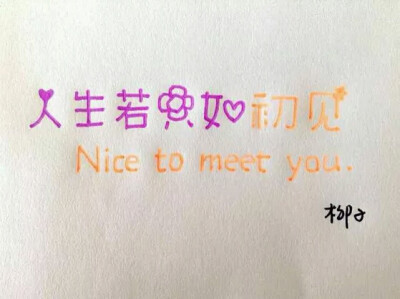 人生若只如初见
Nice to meet you.
柳子